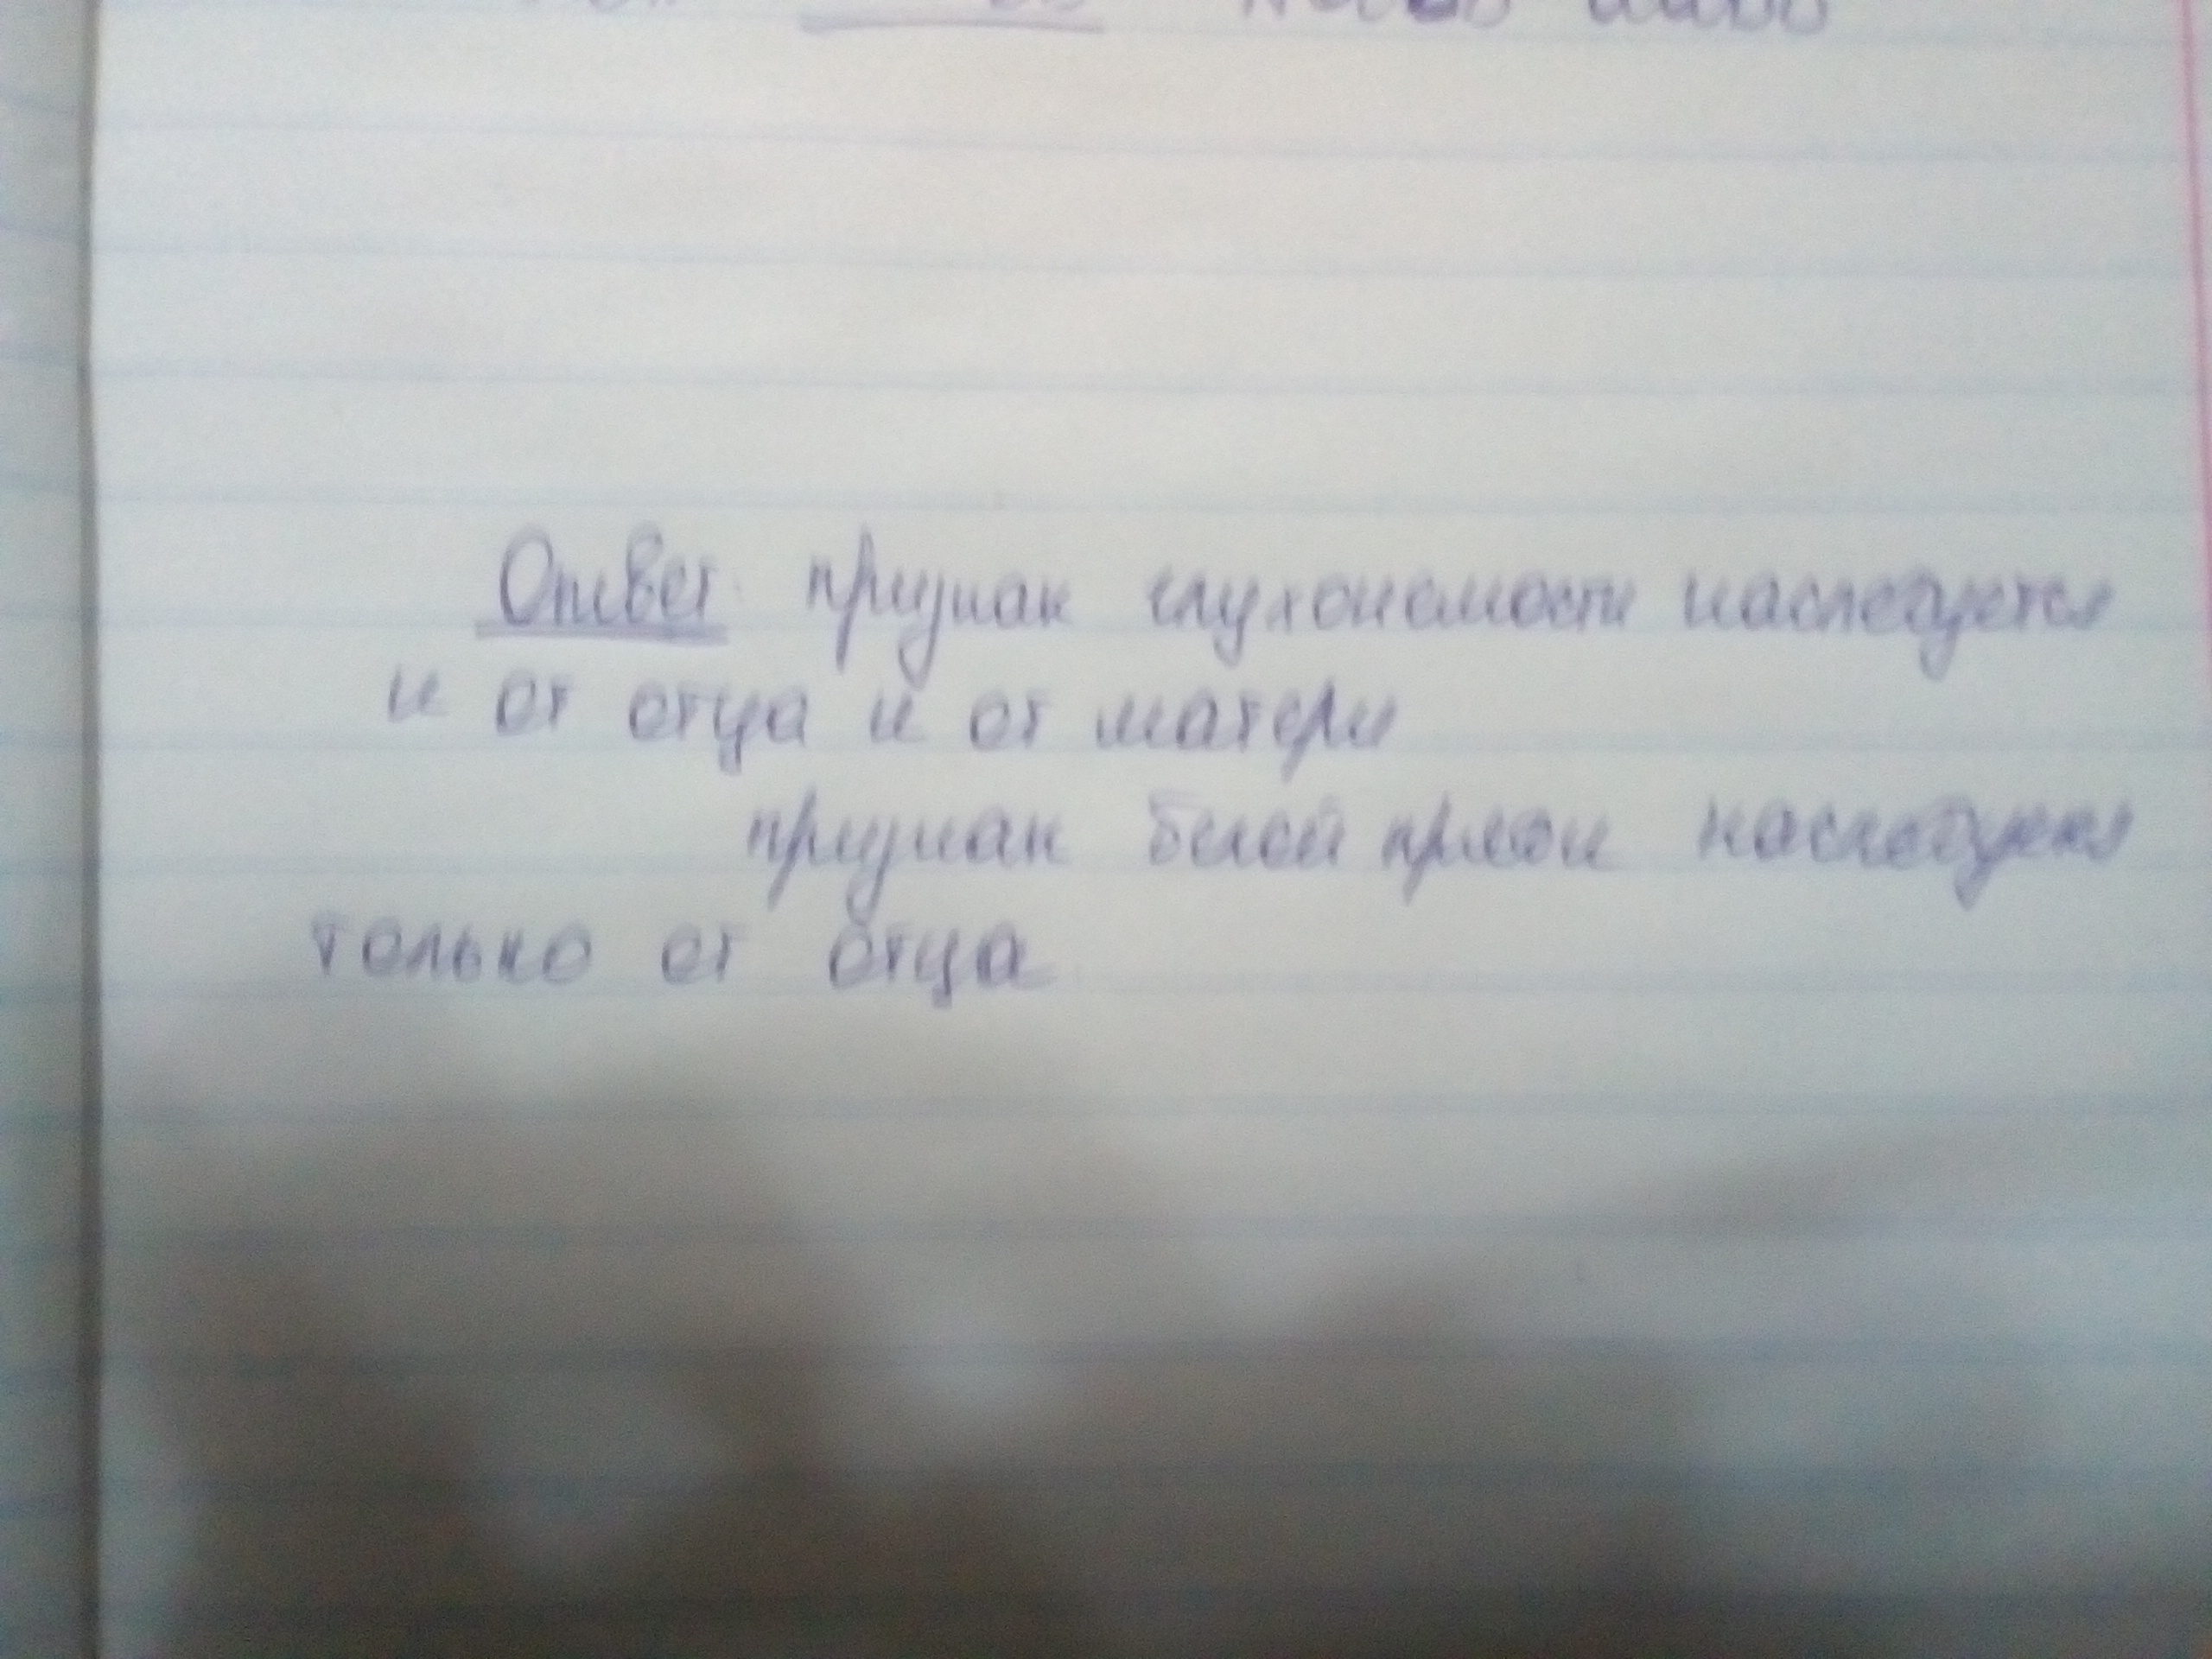 Ответ: признак глухонемости наследуется
и от отца и от матери
признак белой пряди наследуется
только от отца